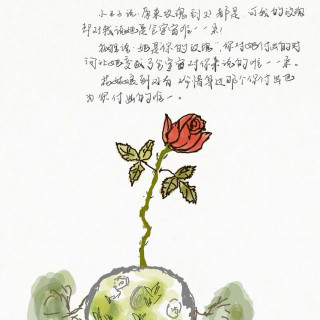 小王子说，原来玫瑰到处都是 可我的玫瑰
却对我说她是全宇宙唯一一朵！
狐狸说"她是你的玫瑰"，你对她付出的时
间让她变成了全宇宙对你来说的唯一一朵。
到 有 过那个你付出也
为你付出的唯一。